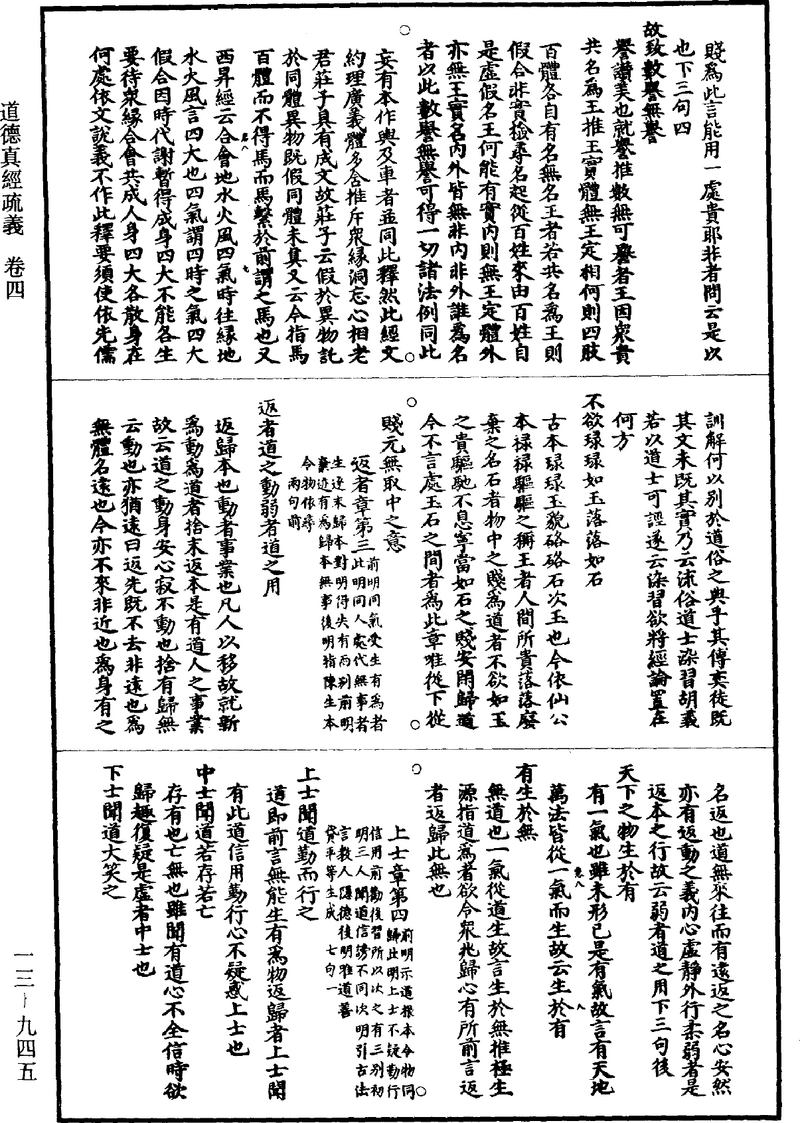 賤為此言能用一處貴耶非者問云是以
也下三句四
故致數譽無譽
譽讚美也就譽推數無可譽者王因眾貴
共名為王推王實體無王定相何則四肢
百體各自有名無名王者若共名為王則
假合非實撿尋名起從百姓來由百姓自
是虛假名王何能有實內則無王定體外
亦無王實名內外皆無非內非外誰為名
者以此數譽無譽可得一切諸法例同此
妄有本作輿及車者並同此釋然此經文
約理廣義體多含推斥眾緣洞忘心相老
君莊子具有成文故莊子云假於異物託
於同體異物既假同體未真又云今指馬
百體而不得馬而馬繫於前謂之馬也又
西昇經云合會地水火風四氣時往緣地
水火風言四大也四氣謂四時之氣四大
假合因時代謝暫得成身四大不能各生
要待眾緣合會共成人身四大各散身在
何處依文說義不作此釋要須使依先儒
訓解何以別於道俗之與乎其傳奕徒既
其文未既其實乃云流俗道士染習胡義
若以道士可誣遂云染習欲將經論置在
何方
不欲琭琭如玉落落如石
古本琭琭玉貌硌硌石次玉也今依仙公
本祿祿驅驅之稱王者人間所貴落落廢
棄之名石者物中之賤為道者不欲如玉
之貴驅馳不息寧當如石之賤安閑歸道
今不言處玉石之間者為此章唯從下從
賤元無取中之意
返者章第三
前明同氣受生有為者
生逐末歸本對明得失有兩別前明
此明同人處代無事者
棄近有為歸本無事後明指陳生本
令物依尋
兩句前
返者道之動弱者道之用
返歸本也動者事業也凡人以移故就新
為動為道者捨末返本是有道人之事業
故云道之動身安心寂不動也捨有歸無
云動也亦猶遠曰返先既不去非遠也為
無體名遠也今亦不來非近也為身有之
名返也道無來往而有遠返之名心安然
亦有返動之義內心虛靜外行柔弱者是
返本之行故云弱者道之用下三句後
天下之物生於有
有一氣也雖未形已是有氣故言有天地
萬法皆從一氣而生故云生於有
有生於無
無道也一氣從道生故言生於無推極生
源指道為者欲令眾兆歸心有所前言返
者返歸此無也
上士章第四
前明示道根本令物同
歸此明上士不疑勤行
信用前勸後習所以次之有三別初
明三人聞道信謗不同次明引古法
言教人隱德後明雅道善
貸平等生成
七句一
上士聞道勤而行之
道即前言無能生有為物返歸者上士聞
有此道信用勤行心不疑惑上士也
中士聞道若存若亡
存有也亡無也雖聞有道心不全信時欲
歸趣復疑是虛者中士也
下士聞道大笑之
道德真經疏義　卷四
一三－九四五